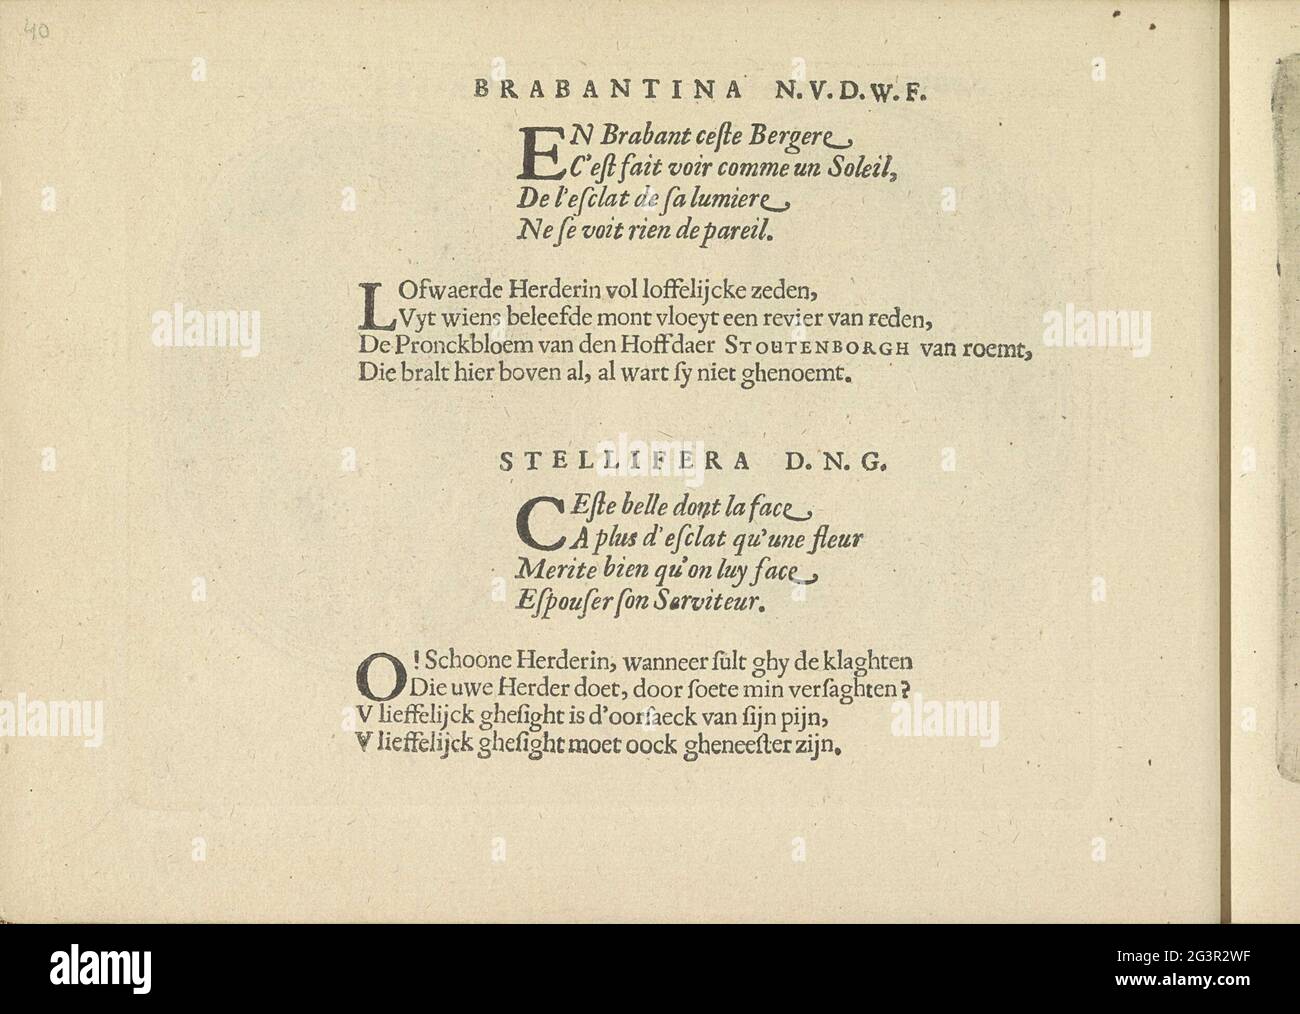 40
BRABANTINA N. V. D. W. F.
EN Brabant ceſte Bergere
C'eſt fait voir comme un Soleil,
De l'eſclat de ſa lumiere
Ne ſe voit rien de pareil.
LOfwaerde Herderin vol loffelijcke zeden,
Vyt wiens beleefde mont vloeyt een revier van reden,
De Pronckbloem van den Hoff daer STOUTENBORGH van roemt,
Die bralt hier boven al, al wart ſy niet ghenoemt.
STELLIFERA D. N. G.
CEſte belle dont la face
A plus d'eſclat qu'une fleur
Merite bien qu'on luy face
Eſpouſer ſon Serviteur.
O! Schoone Herderin, wanneer ſult ghy de klaghten
Die uwe Herder doet, door ſoete min verſaghten?
V lieffelijck gheſight is d'oorſaeck van ſijn pijn,
V lieffelijck gheſight moet oock gheneeſter zijn.
alamy
Image ID: 2G3R2WF
www.alamy.com